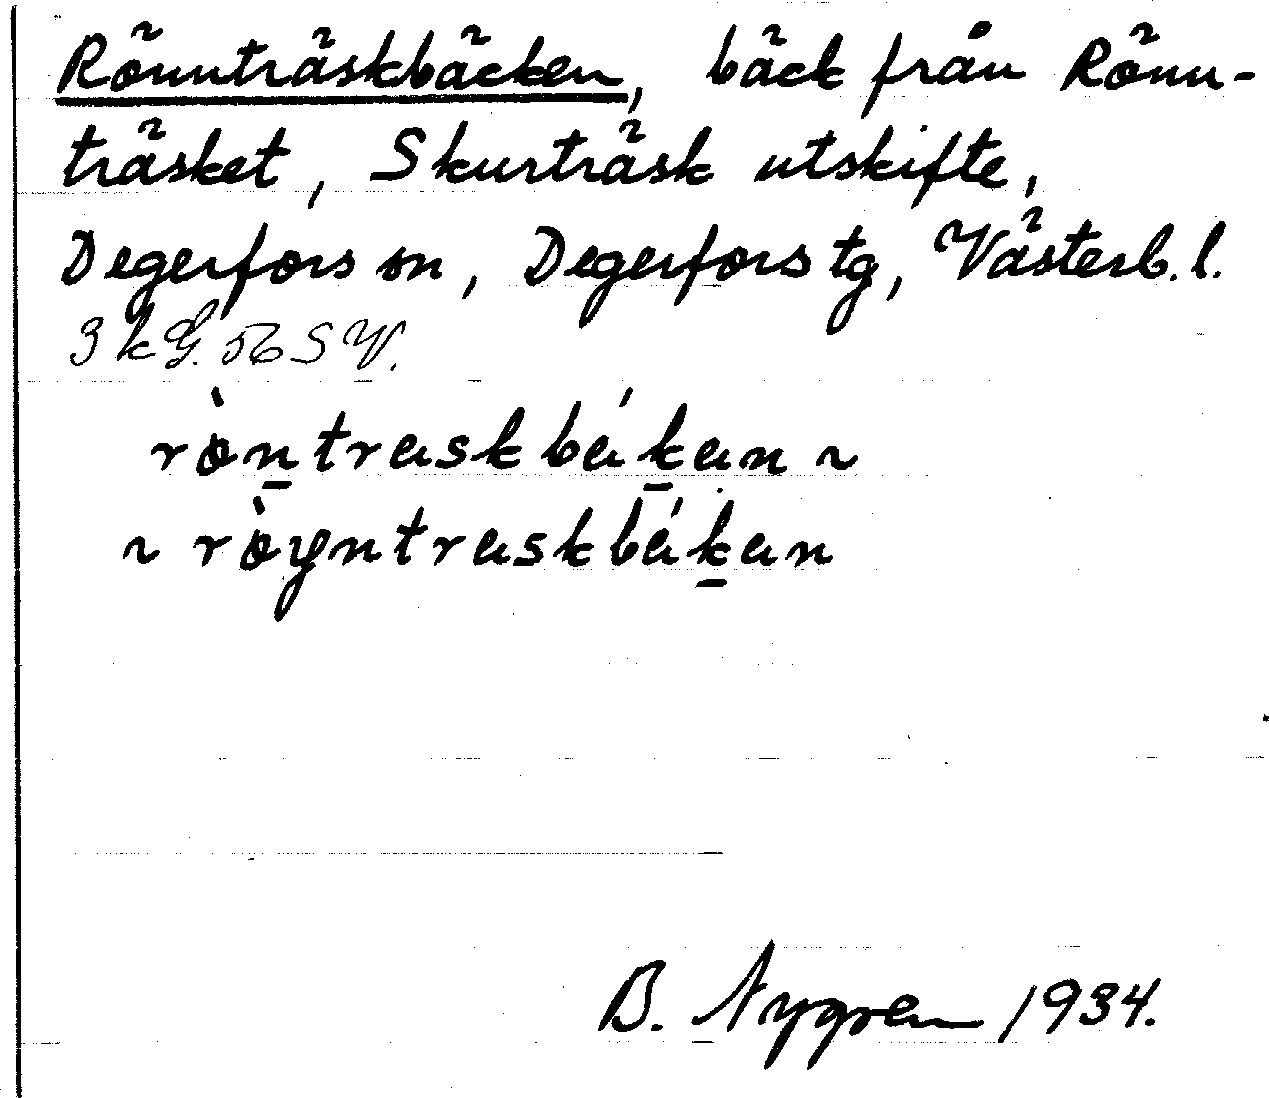 Rönnträskbäcken, bäck från Rönn-
träsket, Skurträsk utskifte,
Degerfors sn, Degerfors tg, Västerb. l.
3 kG. 56 SV.
ròn̲traskbák̲an ~
~ ròyntraskbák̲an
B. Nygren 1934.